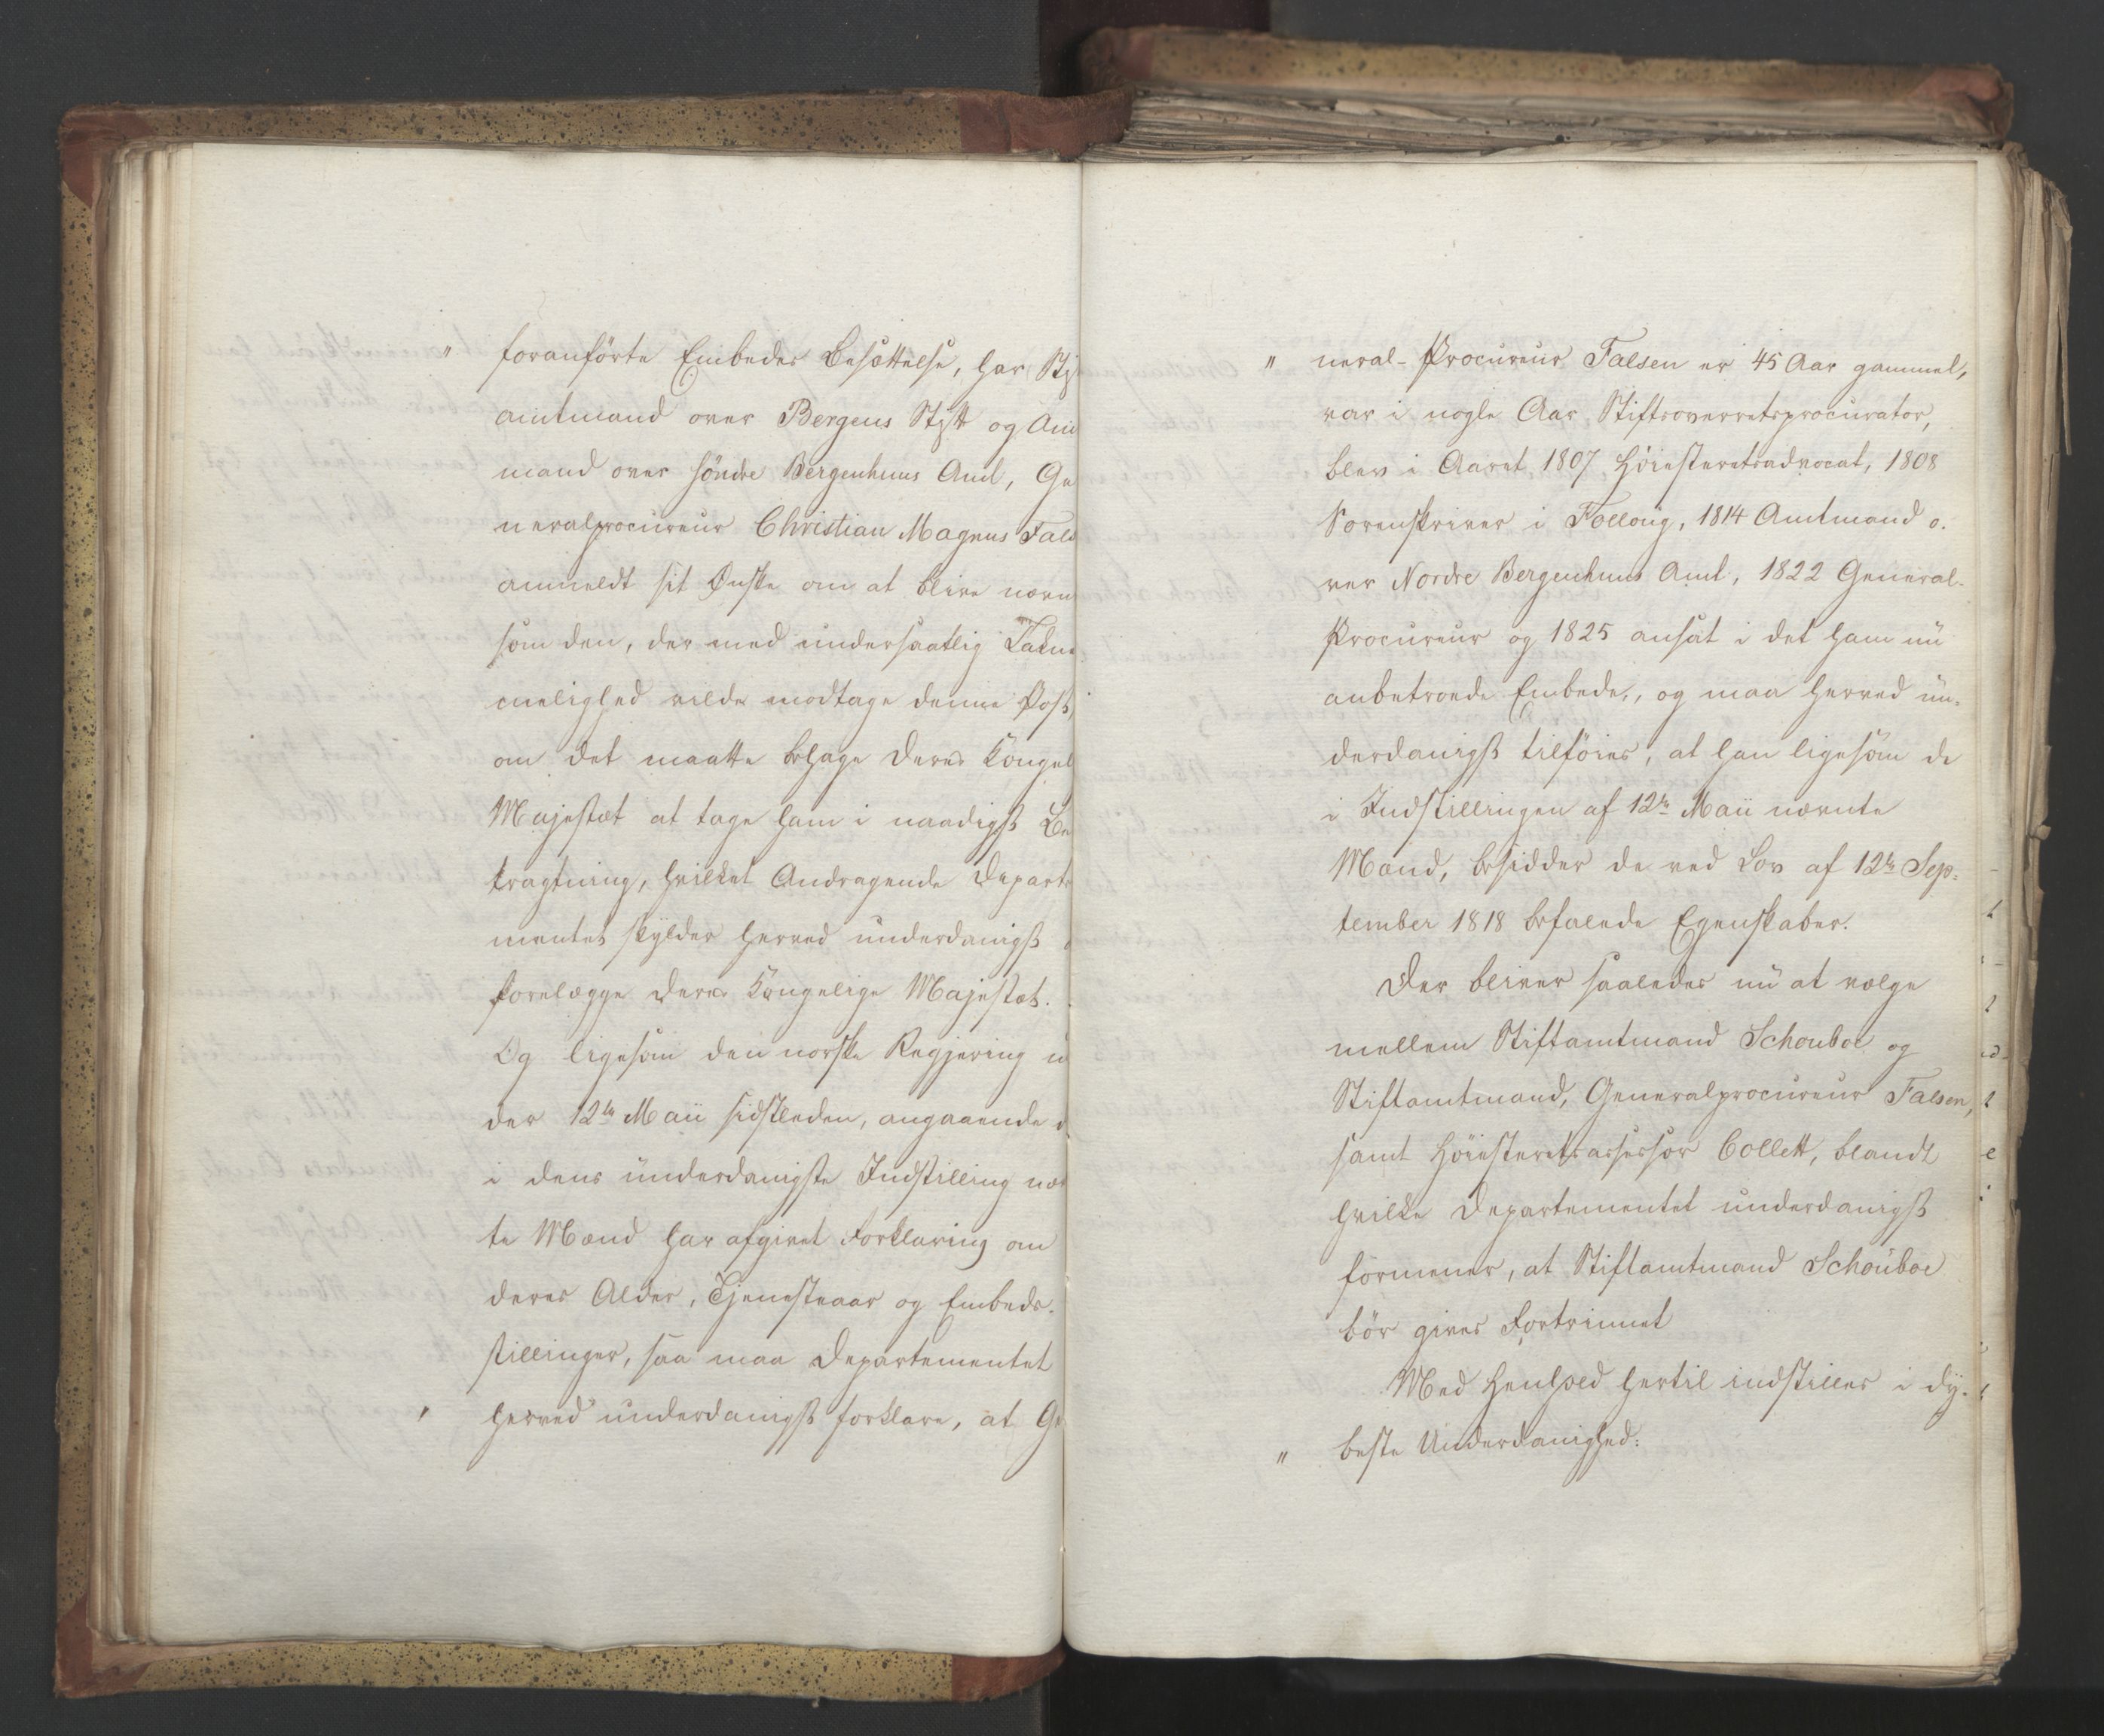 " foranförte Embedes Besættelse, har Stf
amtmand over Bergens Stift og Am
mand over söndre Bergenhuus Amt, Ge
neralprocureur Christian Magnus Fals
anmeldt sit Ønske om at blive nævn
som den, der med undersaatlig Takn
melighed vilde modtage denne Post,
om det maatte behage Deres Kongel
Majestæt at tage ham i naadigst Be
tragtning, hvilket Andragende Departe
mentet skylder herved underdanigst
forelægge Deres Kongelige Majestæt.
Og ligesom den norske Regjering u
der 12te Maii sidstleden, angaaende d
i dens underdanigste Indstilling næv
te Mænd har afgivet Forklaring om
deres Alder, Tjenesteaar og Embeds-
stillinger, saa maa Departementet
' herved underdanigst forklare, at Ge
" neral-Procureur Falsen er 45 Aar gammel,
var i nogle Aar Stiftsoverretsprocurator,
blev i Aaret 1807 Höiesteretsadvocat, 1808
Sorenskriver i Follong, 1814 Amtmand o-
ver Nordre Bergenhuus Amt, 1822 General-
Procureur og 1825 ansat i det ham nu
anbetroede Embede, og maa herved un-
derdanigst tilföies, at han ligesom de
i Indstillingen af 12te Maii nævnte
Mænd, besidder de ved Lov af 12te Sep-
tember 1818 befalede Egenskaber.
Der bliver saaledes nu at vælge
mellem Stiftamtmand Schouboe og
Stiftamtmand, Generalprocureur Falsen,
samt Höiesteretsassessor Collett, blandt
hvilke Departementet underdanigst
formener, at Stiftamtmand Schouboe
bör gives Fortrinnet
Med Henhold hertil indstilles i dy-
" beste Underdanighed: